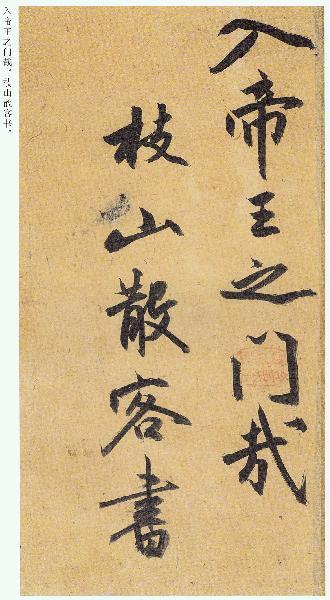 入帝王之门哉
枝山散客书
入帝王之门哉。枝山散客书。